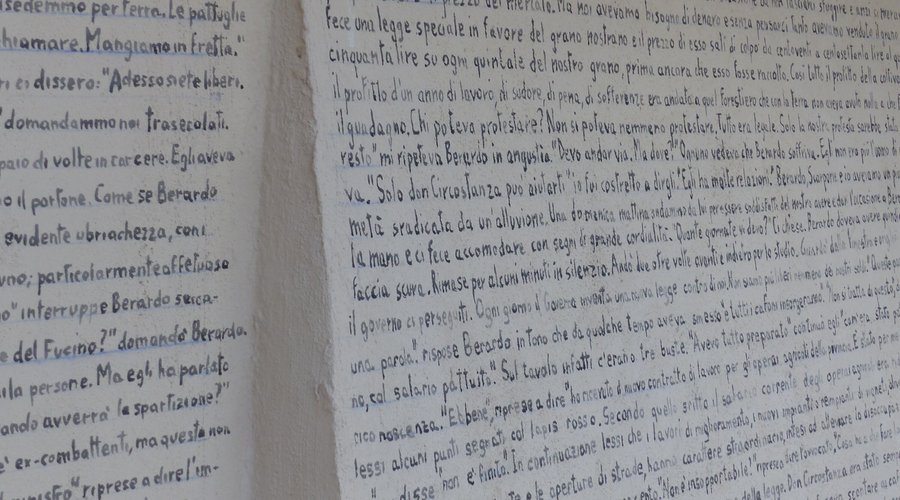 sedemmo per terra. Le pattuglie
chiamare. Mangiamo in fretta."
ci dissero: "Adesso siete liberi.
domandammo noi trasecolati.
paio di volte in carcere. Egli aveva
o il portone. Come se Berardo
evidente ubriachezza, con i
uno; particolarmente affettuoso
" interruppe Berardo secca-
e del Fucino?" domandò Berardo.
ila persone. Ma egli ha parlato
ando avverrà la spartizione?"
e' ex-combattenti, ma questa non
riprese a dire l'im-
prezzo del mercato. Ma noi avevamo bisogno di denaro e senza pensarci
fece una legge speciale in favore del grano nostrano e il prezzo di esso salì di colpo da centoventi a centosettanta lire al
cinquanta lire su ogni quintale del nostro grano, prima ancora che esso fosse raccolto. Così tutto il profitto della
il profitto d'un anno di lavoro, di sudore, di pena, di sofferenze era andato a quel forestiero che con la terra non aveva avuto nulla a che
il guadagno. Chi poteva protestare? Non si poteva nemmeno protestare. Tutto era legale. Solo la nostra protesta sarebbe stata
resto" mi ripeteva Berardo in angustia. "Devo andar via. Ma dove?" Ognuno vedeva che Berardo soffriva. Egli non era più l'uomo di
va. "Solo don Circostanza può aiutarti" io fui costretto a dirgli. "Egli ha molte relazioni." Berardo, Scarpone e io avevamo un
metà sradicata da un'alluvione. Una domenica mattina andammo da lui per essere soddisfatti del nostro avere e dar l'occasione a
la mano e ci fece accomodare con segni di grande cordialità. "Quante giornate vi devo?" Ci chiese. Berardo doveva avere
faccia scura. Rimase per alcuni minuti in silenzio. Andò due o tre volte avanti e indietro per lo studio. Guardò dalla finestra
il governo ci perseguiti. Ogni giorno il Governo inventa una nuova legge contro di noi. Non siamo più liberi nemmeno dei nostri soldi."
una parola." rispose Berardo in tono che da qualche tempo aveva smesso "e tutti i cafoni insorgeranno." "Non si tratta di questo"
no, col salario pattuito." Sul tavolo infatti c'erano tre buste. "Avevo tutto preparato" continuò egli
riconoscenza. "Ebbene," riprese a dire "ho ricevuto il nuovo contratto di lavoro per gli operai agricoli della provincia.
lessi alcuni punti segnati col lapis rosso. Secondo quello scritto il salario corrente degli operai agricoli era
disse, "non è finito." In continuazione lessi che i lavori di miglioramento, i nuovi impianti o rimpianti di vigneti,
e le aperture di strade, hanno carattere straordinario, intesi ad alleviare la
"Non è insopportabile!" riprese a dire l'avvocato. "Cosa ha a che fare la
della legge. Don Circostanza era stato